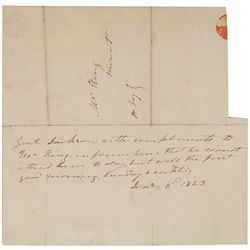 Mr King
present
Genl Jackson with compliments to
Mr King informs him that he cannot
attend him to day, but will the first
good morning, Sunday excepted,
1823